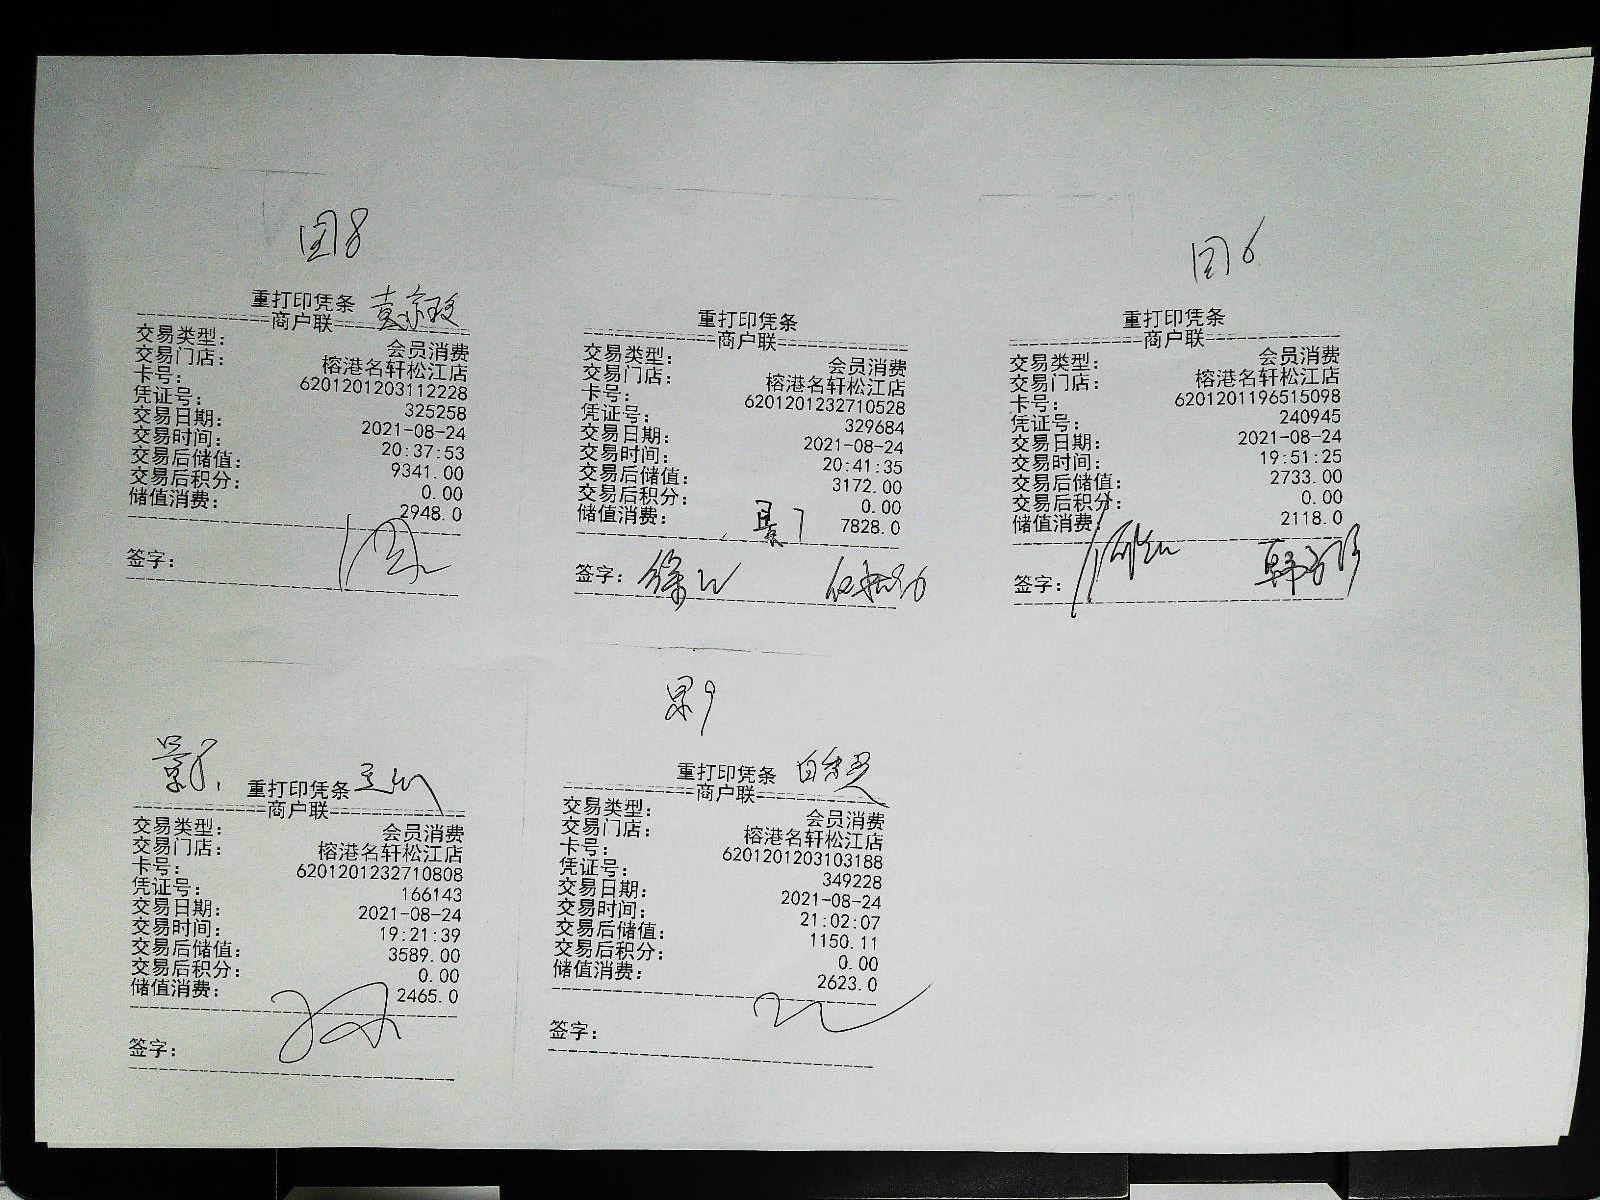 重打印凭条
商户联
交易类型： 会员消费
交易门店： 榕港名轩松江店
卡号： 6201201203112228
凭证号： 325258
交易日期： 2021-08-24
交易时间： 20:37:53
交易后储值： 9341.00
交易后积分： 0.00
储值消费： 2948.0
签字：
重打印凭条
商户联
交易类型： 会员消费
交易门店： 榕港名轩松江店
卡号： 6201201232710528
凭证号： 329684
交易日期： 2021-08-24
交易时间： 20:41:35
交易后储值： 3172.00
交易后积分： 0.00
储值消费： 7828.0
签字：
重打印凭条
商户联
交易类型： 会员消费
交易门店： 榕港名轩松江店
卡号： 6201201196515098
凭证号： 240945
交易日期： 2021-08-24
交易时间： 19:51:25
交易后储值： 2733.00
交易后积分： 0.00
储值消费： 2118.0
签字：
重打印凭条
商户联
交易类型： 会员消费
交易门店： 榕港名轩松江店
卡号： 6201201232710808
凭证号： 166143
交易日期： 2021-08-24
交易时间： 19:21:39
交易后储值： 3589.00
交易后积分： 0.00
储值消费： 2465.0
签字：
重打印凭条
商户联
交易类型： 会员消费
交易门店： 榕港名轩松江店
卡号： 6201201203103188
凭证号： 349228
交易日期： 2021-08-24
交易时间： 21:02:07
交易后储值： 1150.11
交易后积分： 0.00
储值消费： 2623.0
签字：